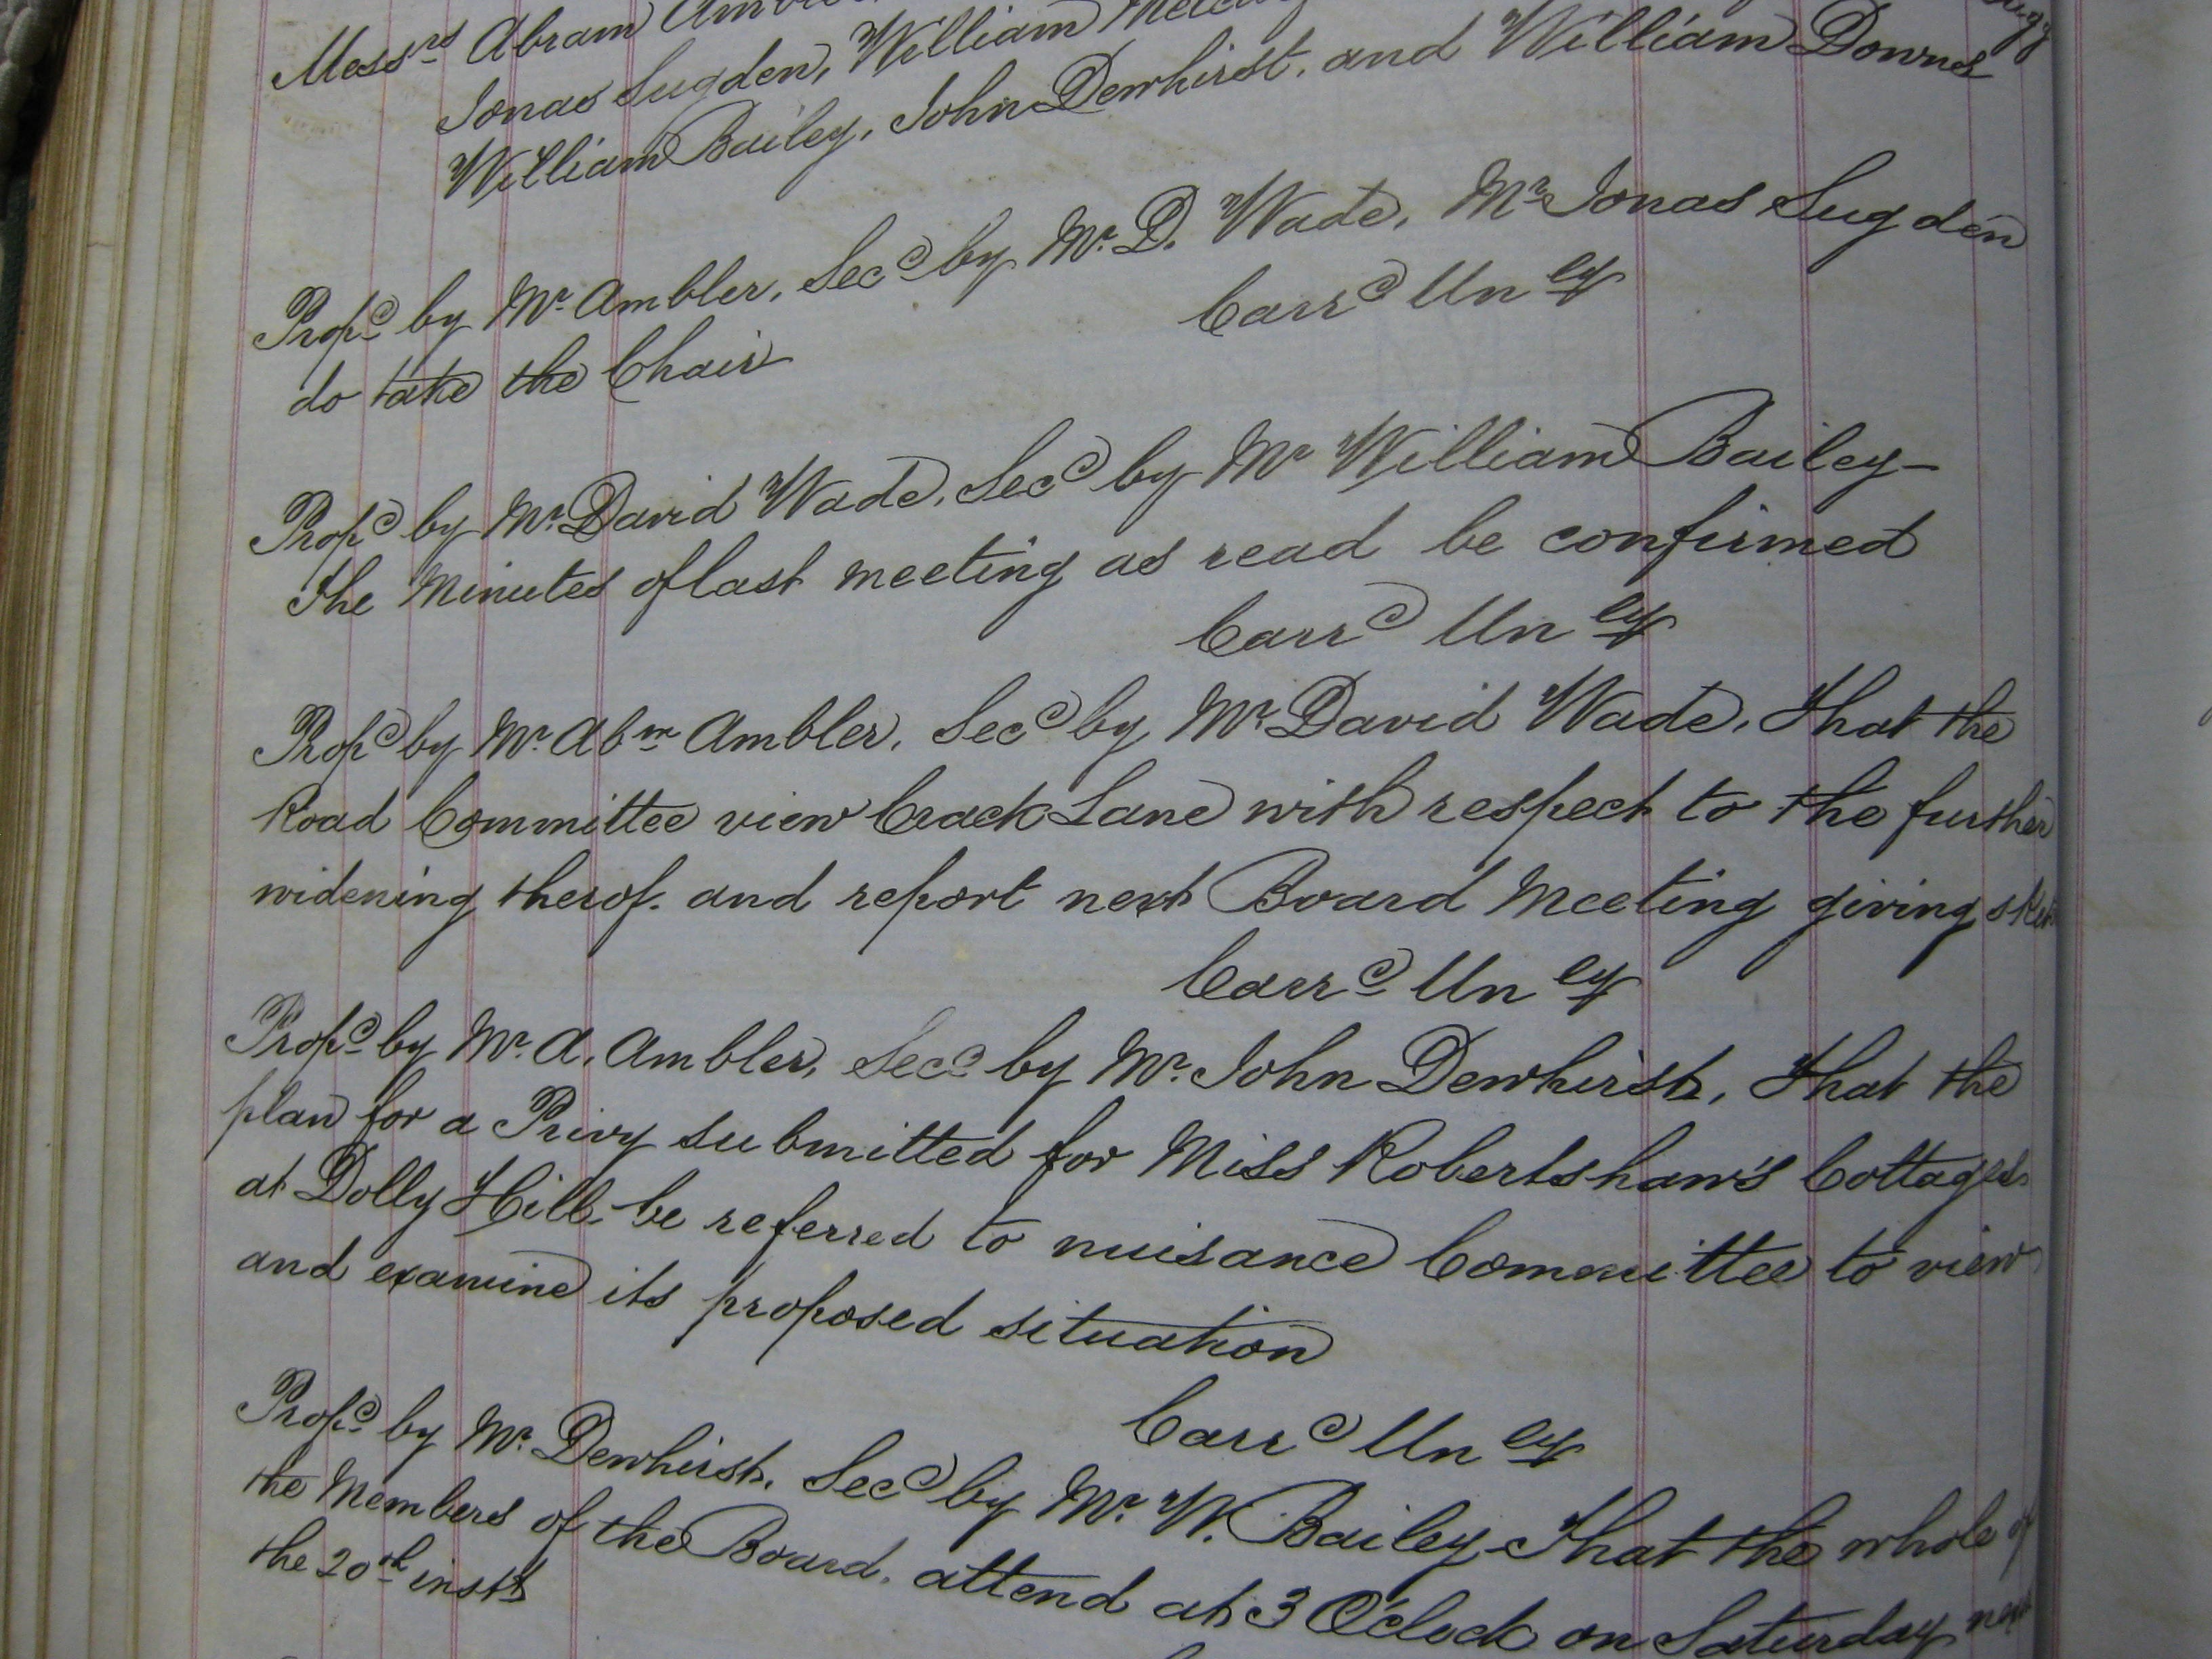 Messrs Abram
Jonas Sugden, William
William Bailey, John Dewhirst, and William Downs
Propd by Mr Ambler, Secd by Mr. D. Wade, Mr Jonas Sugden
do take the Chair
Carrd Unely
Propd by Mr David Wade, Secd by Mr William Bailey–
the Minutes of last meeting as read be confirmed
Carrd Unely
Propd by Mr. Abm Ambler, Secd by Mr David Wade, That the
Road Committee view Crack Lane with respect to the further
widening therof. and report next Board Meeting giving
Carrd Unely
Propd by Mr. A. Ambler, Secd by Mr. John Dewhirst, That the
plan for a Privy submitted for Miss Robertshaw's Cottages
at Dolly Hill be referred to nuisance Committee to view
and examine its proposed situation
Carrd Unely
Propd by Mr. Dewhirst, Secd by Mr. W. Bailey That the whole of
the Members of the Board, attend at 3 O'Clock on Saturday next
the 20th instt